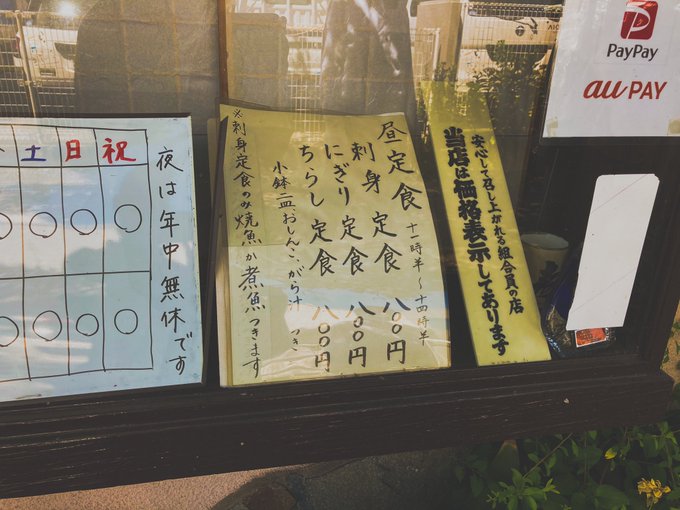 土 日 祝
○ ○ ○ ○
○ ○ ○ ○
夜は年中無休です
昼定食 十一時半〜十四時半
刺身定食 八〇〇円
にぎり定食 八〇〇円
ちらし定食 八〇〇円
小鉢二皿おしんこ、がら汁 つき
※刺身定食のみ焼魚か煮魚つきます
安心して召し上がれる組合員の店
当店は価格表示してあります
PayPay
au PAY